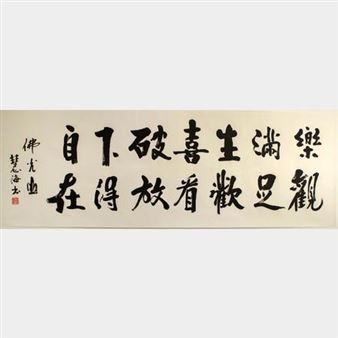 樂觀
滿足
生歡
喜看
破放
下得
自在
佛光